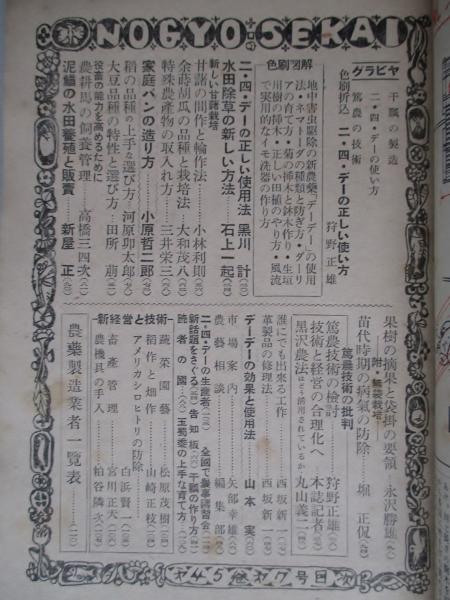 NOGYO-SEKAI
グラビヤ
干瓢の製造
二・四・デーの使い方
篤農の技術
色刷折込 二・四・デーの正しい使い方 狩野正雄
色刷図解
地中害虫駆除の新農薬「デーデー」の使用
法・ネマトーダの種類と防ぎ方・ダーリ
アの育て方・菊の挿木と鉢木作り・生垣
川樹の挿木・正しい田植のやり方・風流
で実用的なイモ洗器の作り方
二・四・デーの正しい使用法 黒川計
水田除草の新しい方法 石上一起
新しい甘藷栽培
甘藷の間作と輪作法 小林利則
余蒔胡瓜の品種と栽培法 大和茂八
特殊農産物の取入れ方 三井栄三
家庭パンの造り方 小原哲二郎
稲の品種の上手な選び方 河原卯太郎
大豆品種の特性と選び方 田所萠
役畜の能力を高めるために
農耕馬の飼養管理 高橋三四次
泥鰌の水田養殖と販賣 新屋正
果樹の摘果と袋掛の要領 永沢勝雄
附・無袋栽培
苗代時期の病氣の防除 堀正侃
篤農技術の批判
篤農技術の檢討 狩野正雄
技術と経営の合理化へ 本誌記者
黒沢農法はどう活用されているか 丸山義二
誰にでも出来る工作 西坂新一
革製品の修理法 西坂新一
デーデーの効果と使用法 山本実
市場案内 矢部幸雄
農藝相談 編集部
二・四・デーの生産者
全国で農事講習会
新話題をさぐる
告知板
干瓢の作り方
読者の園
玉蜀黍の上手な育て方
新経営と技術
蔬菜園藝 松原茂樹
稲作と畑作 山崎正枝
アメリカシロヒトリの防除 白浜賢一
畜産管理 宮川正夫
農機具の手入 粕谷隣次
農藥製造業者一覧表
オ45巻オ7号目次